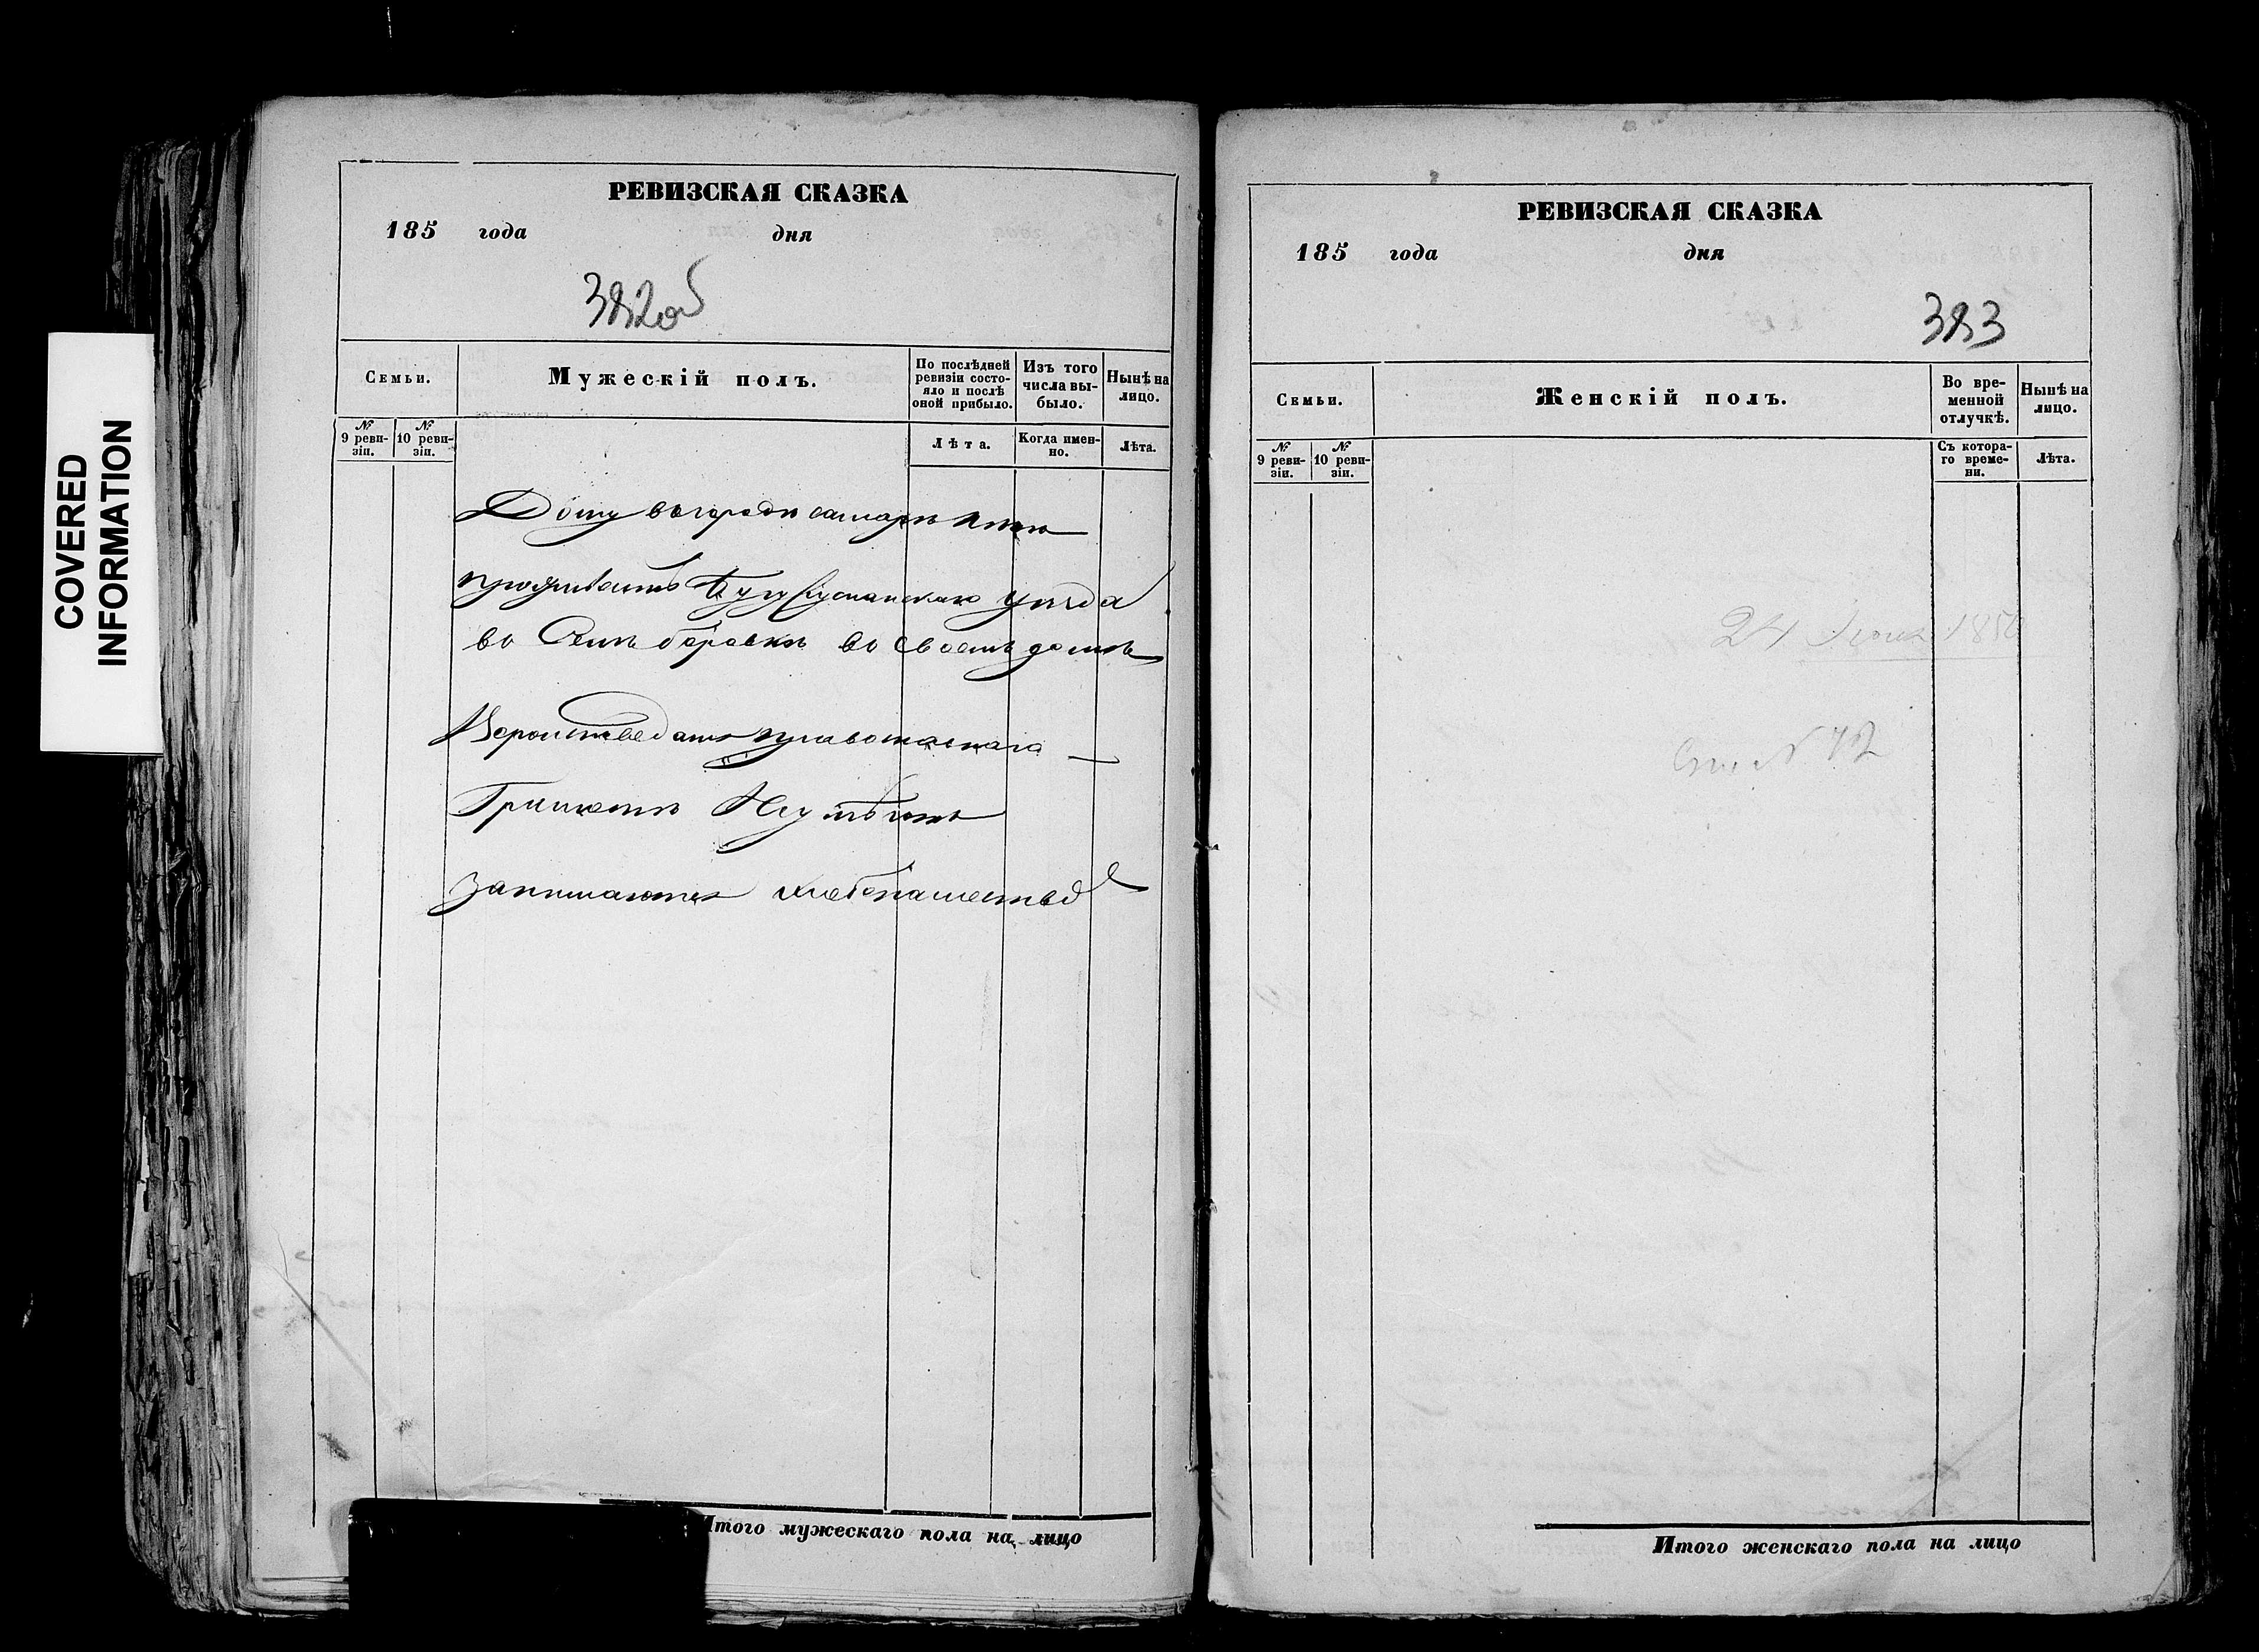 COVERED
INFORMATION
РЕВИЗСКАЯ СКАЗКА
185 года дня
382об
Семьи.
Мужескій полъ.
По послѣдней ревизіи состояло и послѣ оной прибыло.
Изъ того числа выбыло.
Нынѣ на лицо.
№ 9 ревизіи.
№ 10 ревизіи.
Лѣта.
Когда именно.
Лѣта.
Дому въ городѣ самарѣ
проживаетъ Бугурусланскаго уѣзда
во своемъ домѣ
Вероисповеданія православнаго
Грамотѣ
занимаются хлебопашествo
РЕВИЗСКАЯ СКАЗКА
185 года дня
383
Семьи.
Женскій полъ.
Во временной отлучкѣ.
Нынѣ на лицо.
№ 9 ревизіи.
№ 10 ревизіи.
Съ котораго времени.
Лѣта.
24
Итого мужескаго пола на лицо
Итого женскаго пола на лицо